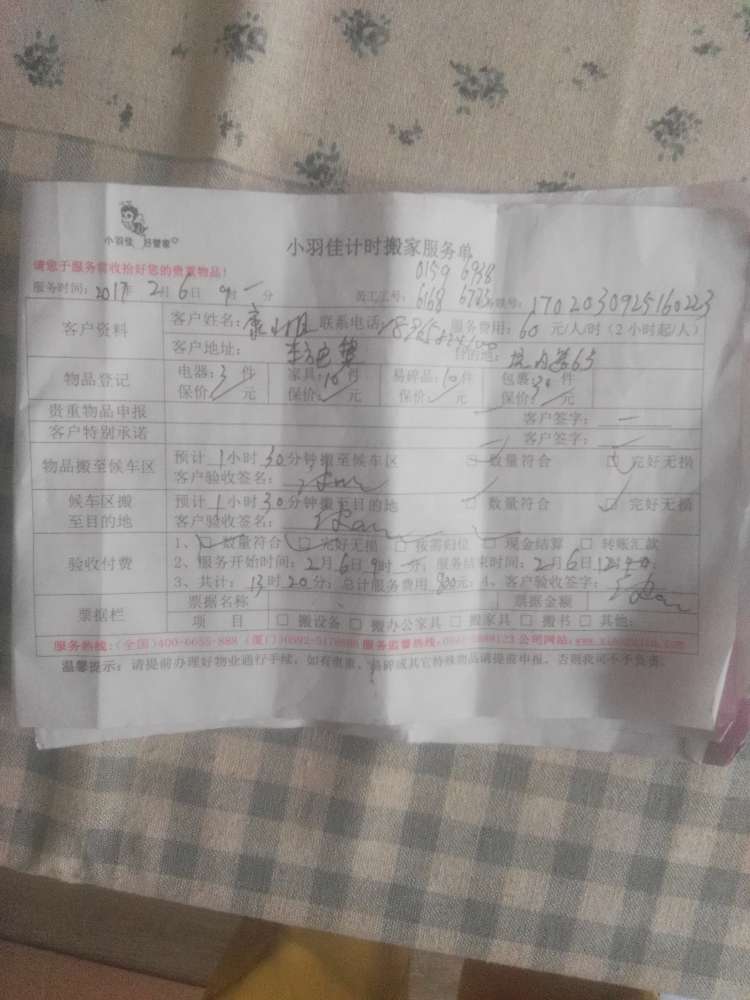 小羽佳 好管家
小羽佳计时搬家服务单
请您于服务前收拾好您的贵重物品!
0159 6938
服务时间: 2017年 2月 6日 9时 一 分 员工工号: 6168 6723 1702030925160223
客户资料
客户姓名: 联系电话: 服务费用: 60 元/人/时 (2小时起/人)
客户地址: 目的地:
物品登记
电器: 3 件 家具: 10 件 易碎品: 10 件 包裹: 30 件
保价: 元 保价: 元 保价: 元 保价: 元
贵重物品申报 客户签字: 一
客户特别承诺 客户签字:
物品搬至候车区
预计 1 小时 30 分钟搬至候车区 □ 数量符合 □ 完好无损
客户验收签名:
候车区搬至目的地
预计 1 小时 30 分钟搬至目的地 □ 数量符合 □ 完好无损
客户验收签名:
验收付费
1、□ 数量符合 □ 完好无损 □ 按需归位 □ 现金结算 □ 转账汇款
2、服务开始时间: 2月 6日 9时 分; 服务结束时间: 2月 6日 12时
3、共计: 13时 20分; 总计服务费用 800元; 4、客户验收签字:
票据栏
票据名称 票据金额
项 目 □ 搬设备 □ 搬办公家具 □ 搬家具 □ 搬书 □ 其他:
服务热线: (全国)400-6655-888 (厦门) 服务监督热线: 公司网站:
温馨提示: 请提前办理好物业通行手续, 如有贵重、易碎或其它特殊物品请提前申报, 否则我司不予负责。